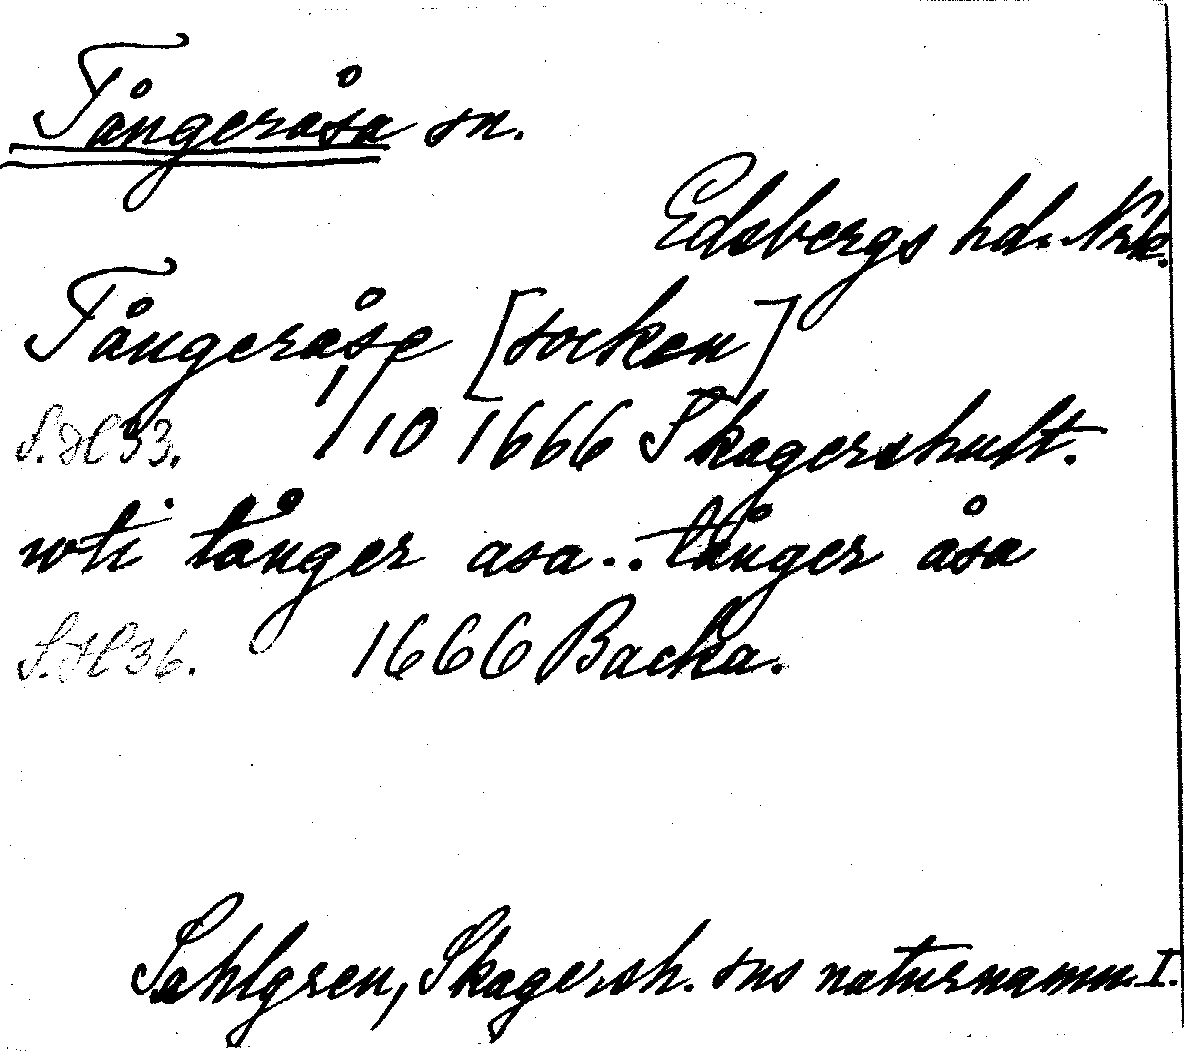 Tångeråsa sn.
Edsbergs hd. Nrk.
Tångeråse [socken]
S. 33. 1/10 1666 Skagershult.
wti tånger asa.. tånger åsa
S. 36. 1666 Backa.
Sahlgren, Skagersh. sns naturnamn I.